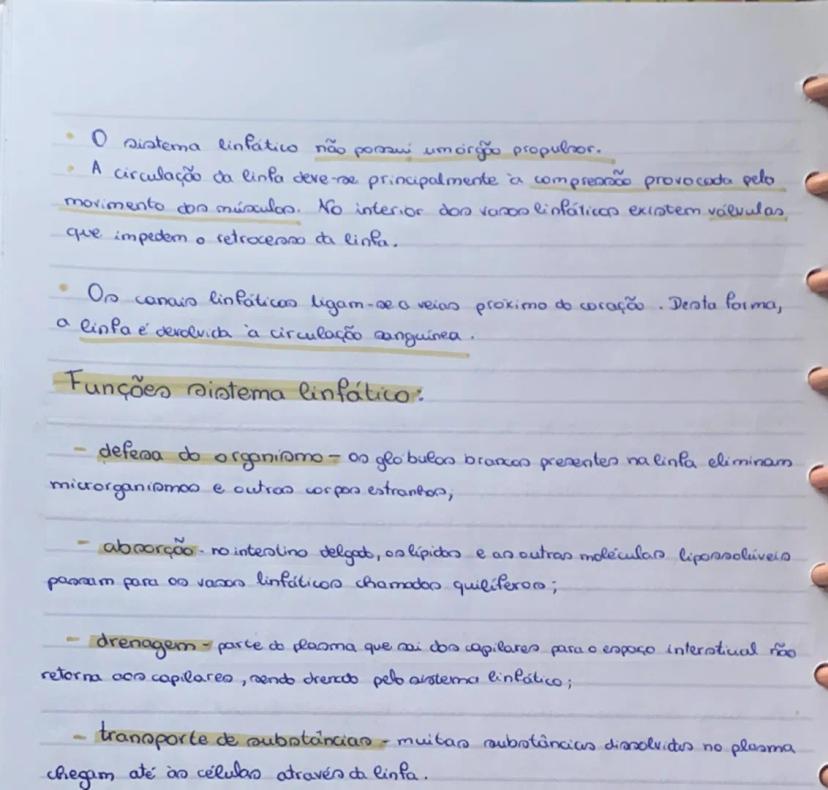 • O sistema linfático não possui um órgão propulsor.
• A circulação da linfa deve-se principalmente à compressão provocada pelo
movimento dos músculos. No interior dos vasos linfáticos existem válvulas
que impedem o retrocesso da linfa.
• Os canais linfáticos ligam-se a veias próximo do coração. Desta forma,
a linfa é devolvida à circulação sanguínea.
Funções sistema linfático:
- defesa do organismo - os glóbulos brancos presentes na linfa eliminam
microrganismos e outros corpos estranhos;
- absorção - no intestino delgado, os lípidos e as outras moléculas lipossolúveis
passam para os vasos linfáticos chamados quilíferos;
- drenagem - parte do plasma que sai dos capilares para o espaço interstitual não
retorna aos capilares, sendo drenado pelo sistema linfático;
- transporte de substâncias - muitas substâncias dissolvidas no plasma
chegam até às células através da linfa.